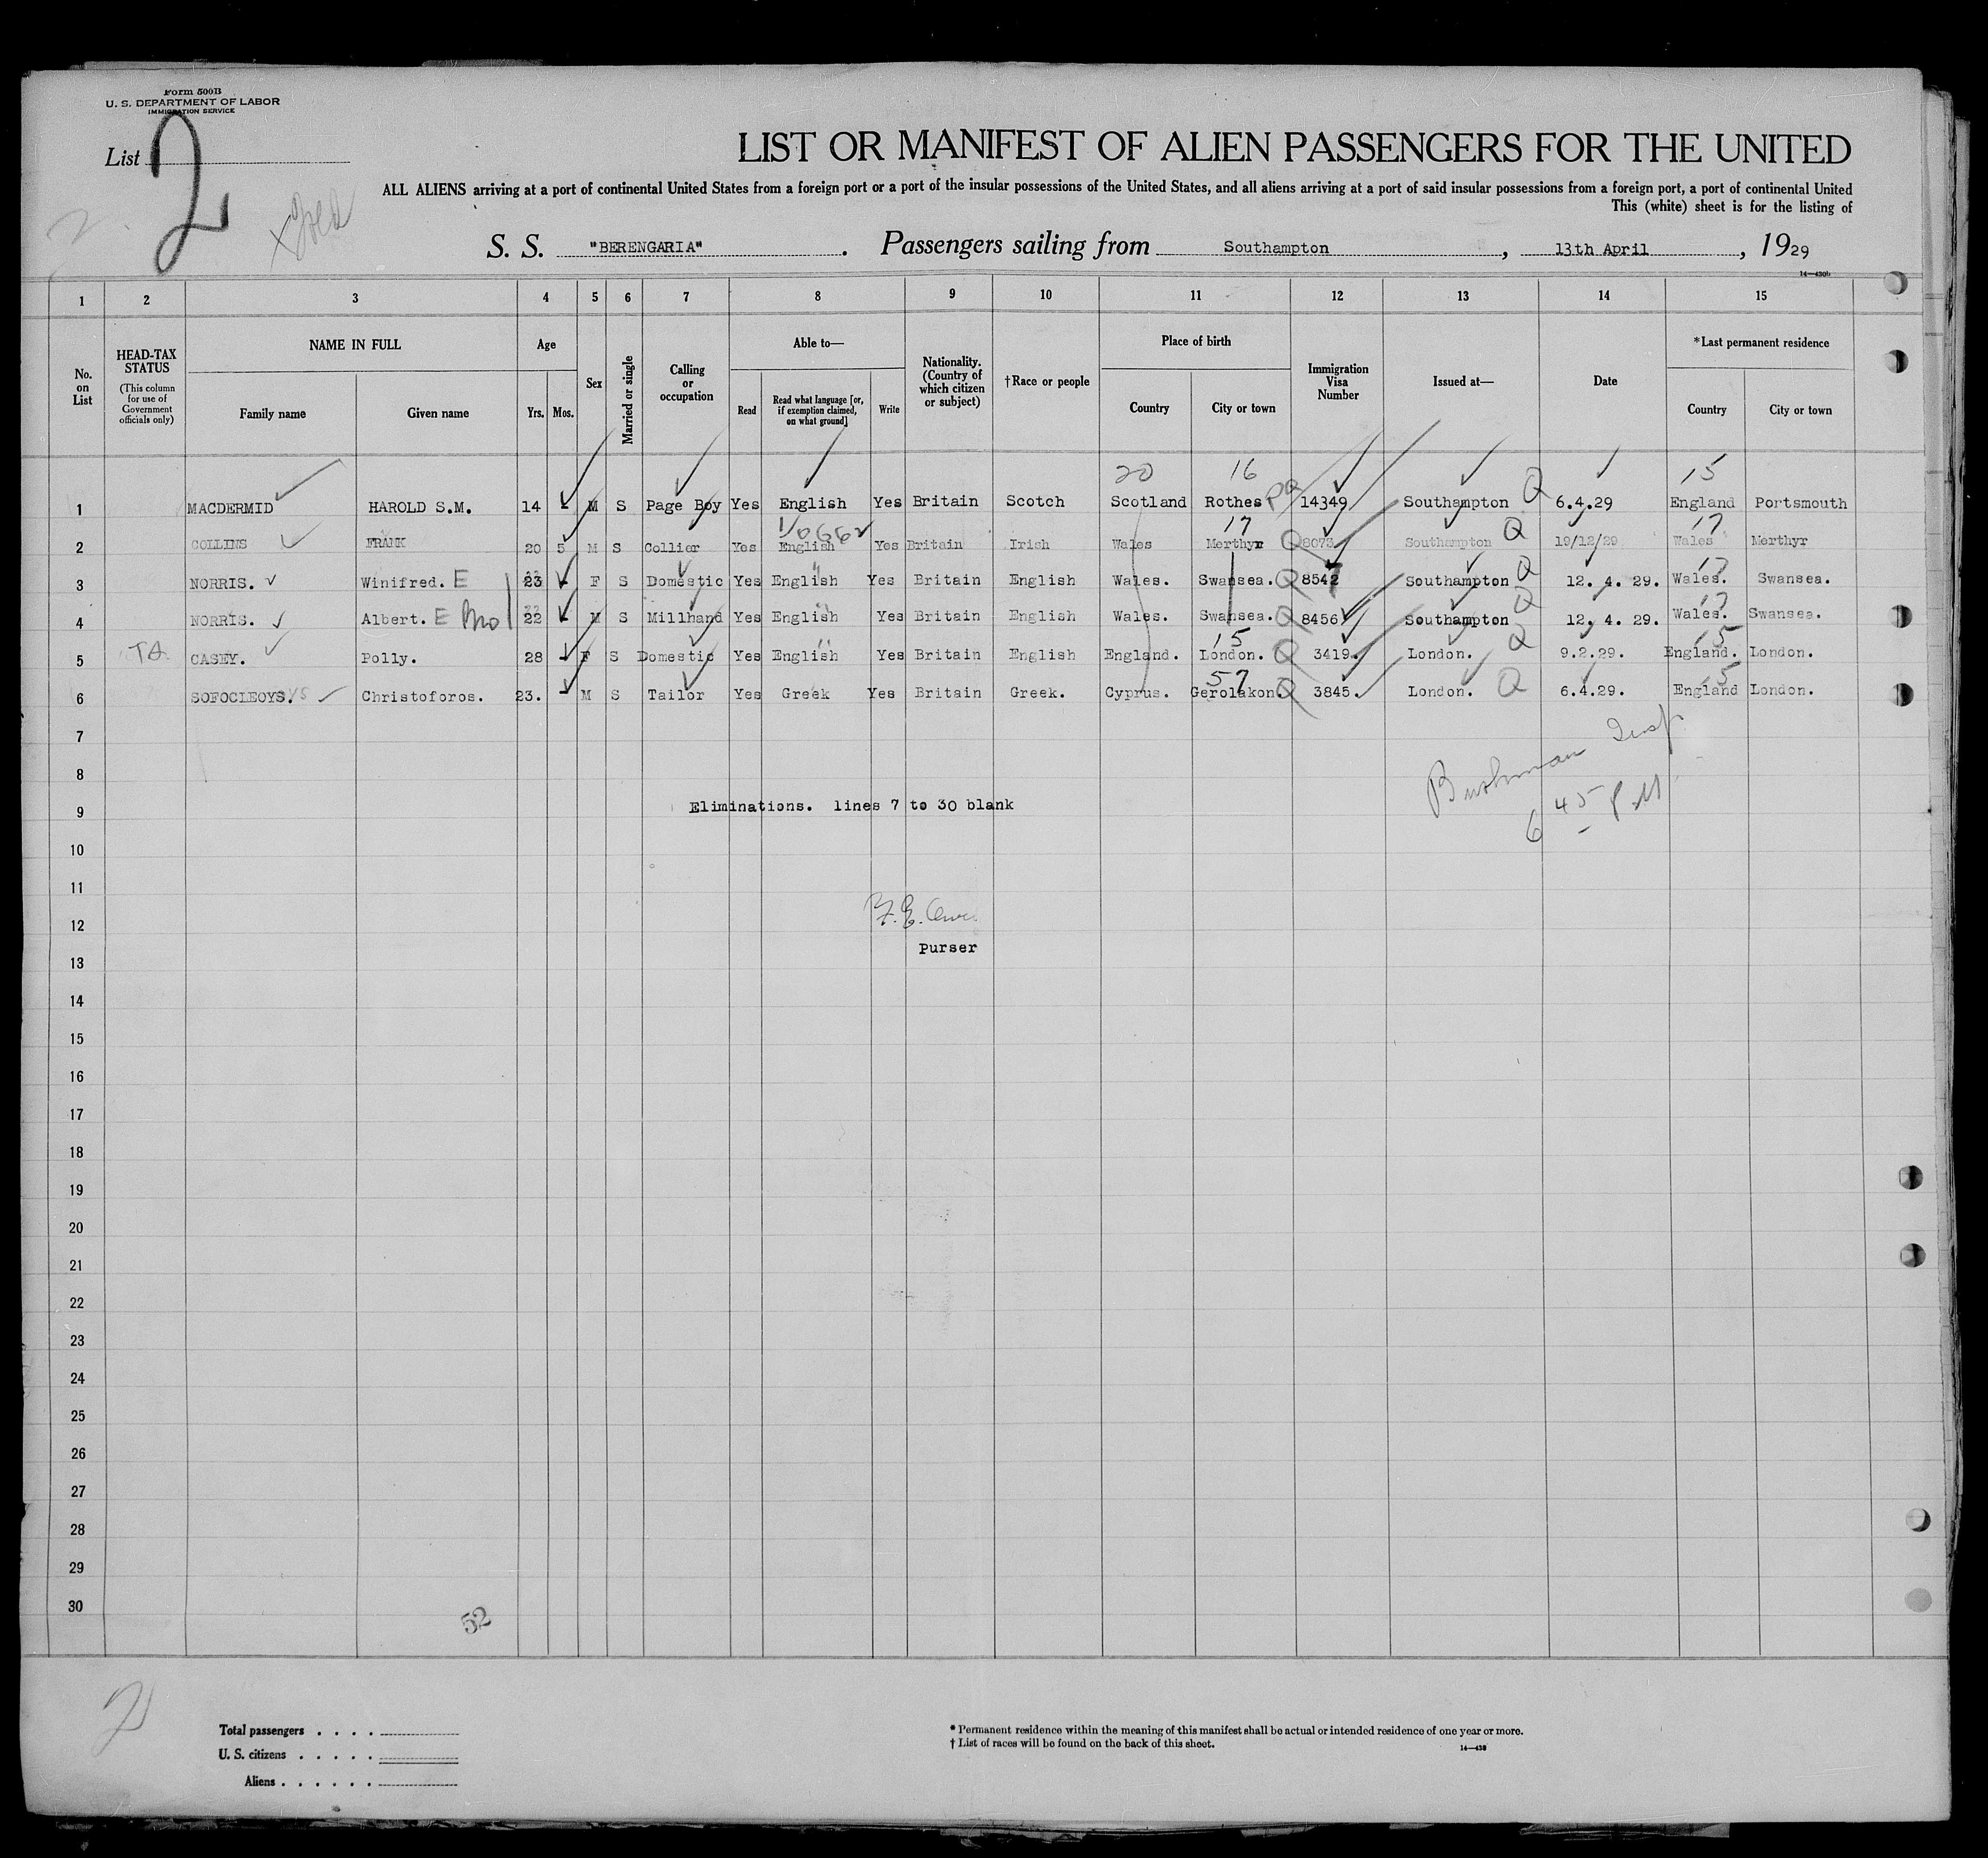 Form 500B
U. S. DEPARTMENT OF LABOR
IMMIGRATION SERVICE
List 2
LIST OR MANIFEST OF ALIEN PASSENGERS FOR THE UNITED
ALL ALIENS arriving at a port of continental United States from a foreign port or a port of the insular possessions of the United States, and all aliens arriving at a port of said insular possessions from a foreign port, a port of continental United
This (white) sheet is for the listing of
S. S. "BERENGARIA". Passengers sailing from Southampton, 13th April, 1929
14—430b
1 2 3 4 5 6 7 8 9 10 11 12 13 14 15
No. on List
HEAD-TAX STATUS (This column for use of Government officials only)
NAME IN FULL Family name Given name
Age Yrs. Mos.
Sex
Married or single
Calling or occupation
Able to— Read Read what language [or, if exemption claimed, on what ground] Write
Nationality. (Country of which citizen or subject)
†Race or people
Place of birth Country City or town
Immigration Visa Number
Issued at—
Date
*Last permanent residence Country City or town
20 16 15
1 MACDERMID HAROLD S.M. 14 - M S Page Boy Yes English Yes Britain Scotch Scotland Rothes 14349 Southampton Q 6.4.29 England Portsmouth
17 17
2 COLLINS FRANK 20 5 M S Collier Yes English Yes Britain Irish Wales Merthyr Q 8073 Southampton Q 19/12/29 Wales Merthyr
17
3 NORRIS. Winifred. E 23 - F S Domestic Yes English Yes Britain English Wales. Swansea. Q 8542 Southampton Q 12. 4. 29. Wales. Swansea.
17
4 NORRIS. Albert. E 22 - M S Millhand Yes English Yes Britain English Wales. Swansea. Q 8456 Southampton Q 12. 4. 29. Wales. Swansea.
15 15
5 TA CASEY. Polly. 28 - F S Domestic Yes English Yes Britain English England. London. Q 3419. London. Q 9.2.29. England. London.
57 15
6 SOFOCLEOYS. Christoforos. 23. - M S Tailor Yes Greek Yes Britain Greek. Cyprus. Gerolakon. Q 3845. London. Q 6.4.29. England London.
7
Bushman Insp
8
6 45 PM
9 Eliminations. lines 7 to 30 blank
10
11
12
Purser
13
14
15
16
17
18
19
20
21
22
23
24
25
26
27
28
29
30
52
2
Total passengers . . . .
U. S. citizens . . . . .
Aliens . . . . . .
* Permanent residence within the meaning of this manifest shall be actual or intended residence of one year or more.
† List of races will be found on the back of this sheet.
14—430